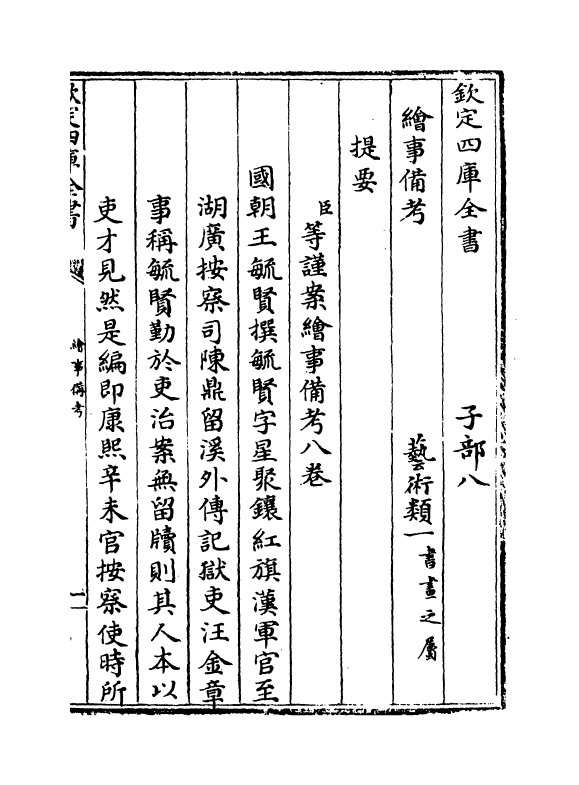 欽定四庫全書　子部八
繪事備考　藝術類一書畫之屬
提要
臣等謹案繪事備考八卷
國朝王毓賢撰毓賢字星聚鑲紅旗漢軍官至
湖廣按察司陳鼎留溪外傳記獄吏汪金章
事稱毓賢勤於吏治案無留牘則其人本以
吏才見然是編即康熙辛未官按察使時所
欽定四庫全書　繪事備考　一